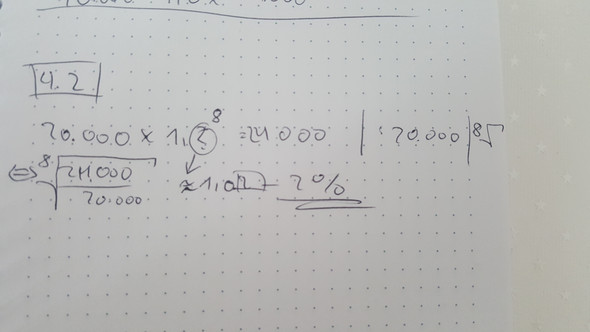 4.2
20.000 x 1,?⁸ =24.000 | :20.000 | ⁸√
⇔ ⁸√24.000/20.000 ≈1,02 2%